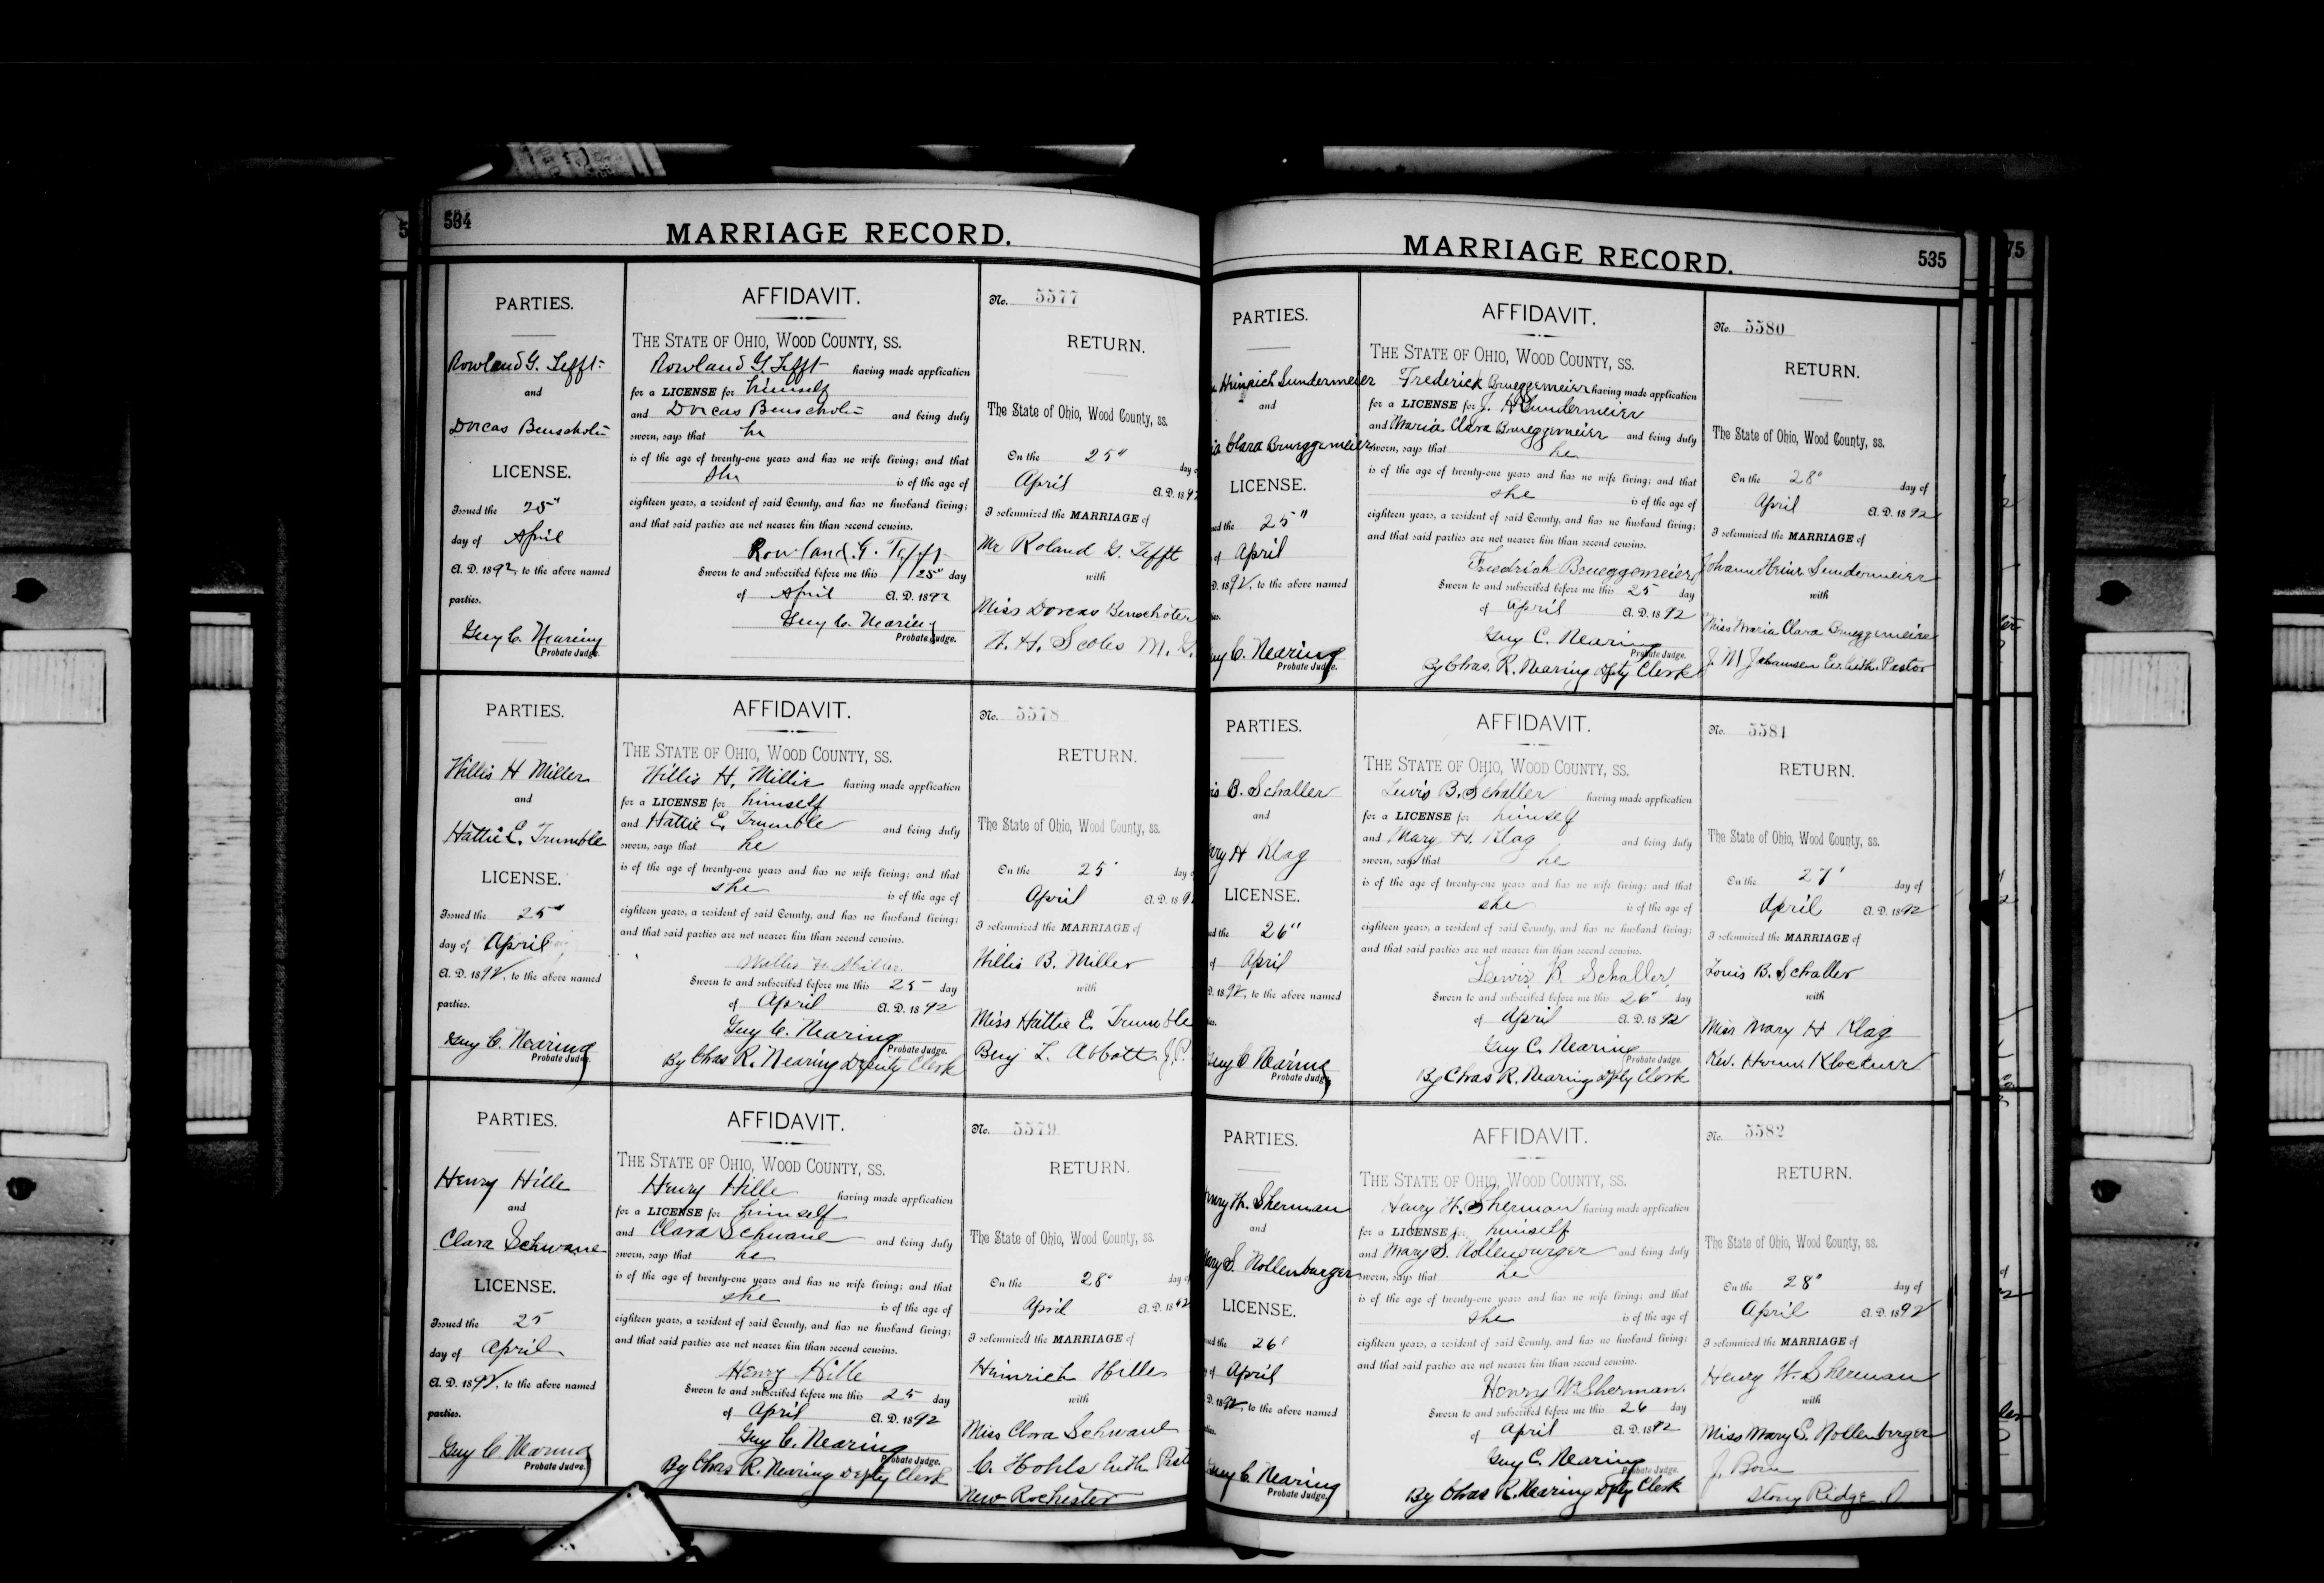 534
MARRIAGE RECORD.
PARTIES.
Rowland G. Tefft
and
Dorcas Benschoter
LICENSE.
Issued the 25"
day of April
A. D. 1892, to the above named
parties.
Guy C. Nearing
Probate Judge.
AFFIDAVIT.
THE STATE OF OHIO, WOOD COUNTY, SS.
Rowland G. Tefft having made application
for a LICENSE for himself
and Dorcas Benschoter and being duly
sworn, says that he
is of the age of twenty-one years and has no wife living; and that
she is of the age of
eighteen years, a resident of said County, and has no husband living;
and that said parties are not nearer kin than second cousins.
Rowland G. Tefft
Sworn to and subscribed before me this 25" day
of April A. D. 1892
Guy C. Nearing
Probate Judge.
No. 5577
RETURN.
The State of Ohio, Wood County, ss.
On the 25" day o
April A. D. 189
I solemnized the MARRIAGE of
Mr Roland G. Tefft
with
Miss Dorcas Benschoter
H. H. Scoles M. G.
PARTIES.
Willis H Miller
and
Hattie E. Trumble
LICENSE.
Issued the 25"
day of April
A. D. 1892, to the above named
parties.
Guy C. Nearing
Probate Judge.
AFFIDAVIT.
THE STATE OF OHIO, WOOD COUNTY, SS.
Willis H. Miller having made application
for a LICENSE for himself
and Hattie E. Trumble and being duly
sworn, says that he
is of the age of twenty-one years and has no wife living; and that
she is of the age of
eighteen years, a resident of said County, and has no husband living;
and that said parties are not nearer kin than second cousins.
Willis H. Miller
Sworn to and subscribed before me this 25 day
of April A. D. 1892
Guy C. Nearing
Probate Judge.
By Chas R. Nearing Deputy Clerk
No. 5578
RETURN.
The State of Ohio, Wood County, ss.
On the 25' day o
April A. D. 189
I solemnized the MARRIAGE of
Willis B. Miller
with
Miss Hattie E. Trumble
Benj L. Abbott J.P.
PARTIES.
Henry Hille
and
Clara Schwane
LICENSE.
Issued the 25
day of April
A. D. 1892, to the above named
parties.
Guy C. Nearing
Probate Judge.
AFFIDAVIT.
THE STATE OF OHIO, WOOD COUNTY, SS.
Henry Hille having made application
for a LICENSE for himself
and Clara Schwane and being duly
sworn, says that he
is of the age of twenty-one years and has no wife living; and that
she is of the age of
eighteen years, a resident of said County, and has no husband living;
and that said parties are not nearer kin than second cousins.
Henry Hille
Sworn to and subscribed before me this 25 day
of April A. D. 1892
Guy C. Nearing
Probate Judge.
By Chas R. Nearing Depty Clerk
No. 5579
RETURN.
The State of Ohio, Wood County, ss.
On the 28" day of
April A. D. 1892
I solemnized the MARRIAGE of
Heinrich Hille
with
Miss Clara Schwane
C. Hohls Luth Past
New Rochester
MARRIAGE RECORD.
535
PARTIES.
Heinrich Sundermeier
and
ia Clara Brueggemeier
LICENSE.
ed the 25"
of April
D. 1892, to the above named
ies.
uy C. Nearing
Probate Judge.
AFFIDAVIT.
THE STATE OF OHIO, WOOD COUNTY, SS.
Frederick Brueggemeier having made application
for a LICENSE for J. H Sundermeier
and Maria Clara Brueggemeier and being duly
sworn, says that he
is of the age of twenty-one years and has no wife living; and that
she is of the age of
eighteen years, a resident of said County, and has no husband living;
and that said parties are not nearer kin than second cousins.
Friedrich Brueggemeier
Sworn to and subscribed before me this 25 day
of April A. D. 1892
Guy C. Nearing
Probate Judge.
By Chas. R. Nearing Dpty Clerk
No. 5580
RETURN.
The State of Ohio, Wood County, ss.
On the 28" day of
April A. D. 1892
I solemnized the MARRIAGE of
Johann Heinr. Sundermeier
with
Miss Maria Clara Brueggemeier
J. M Johannsen Ev. Luth. Pastor
PARTIES.
is B. Schaller
and
ary H Klag
LICENSE.
ed the 26"
of April
D. 1892, to the above named
ies.
Guy C Nearing
Probate Judge
AFFIDAVIT.
THE STATE OF OHIO, WOOD COUNTY, SS.
Lewis B. Schaller having made application
for a LICENSE for himself
and Mary H. Klag and being duly
sworn, says that he
is of the age of twenty-one years and has no wife living; and that
she is of the age of
eighteen years, a resident of said County, and has no husband living;
and that said parties are not nearer kin than second cousins.
Lewis B. Schaller
Sworn to and subscribed before me this 26" day
of April A. D. 1892
Guy C. Nearing
Probate Judge.
By Chas R. Nearing Dpty Clerk
No. 5581
RETURN.
The State of Ohio, Wood County, ss.
On the 27' day of
April A. D. 1892
I solemnized the MARRIAGE of
Louis B. Schaller
with
Miss Mary H Klag
Rev. Herm. Klockner
PARTIES.
enry W. Sherman
and
Mary S. Nollenburger
LICENSE.
ued the 26'
of April
D. 1892, to the above named
ies.
Guy C. Nearing
Probate Judge.
AFFIDAVIT.
THE STATE OF OHIO, WOOD COUNTY, SS.
Henry W. Sherman having made application
for a LICENSE for himself
and Mary S. Nollenburger and being duly
sworn, says that he
is of the age of twenty-one years and has no wife living; and that
she is of the age of
eighteen years, a resident of said County, and has no husband living;
and that said parties are not nearer kin than second cousins.
Henry W. Sherman.
Sworn to and subscribed before me this 26 day
of April A. D. 1892
Guy C. Nearing
Probate Judge.
By Chas R. Nearing Dpty Clerk
No. 5582
RETURN.
The State of Ohio, Wood County, ss.
On the 28" day of
April A. D. 1892
I solemnized the MARRIAGE of
Henry W. Sherman
with
Miss Mary S. Nollenberger
J. Born
Stony Ridge O
75